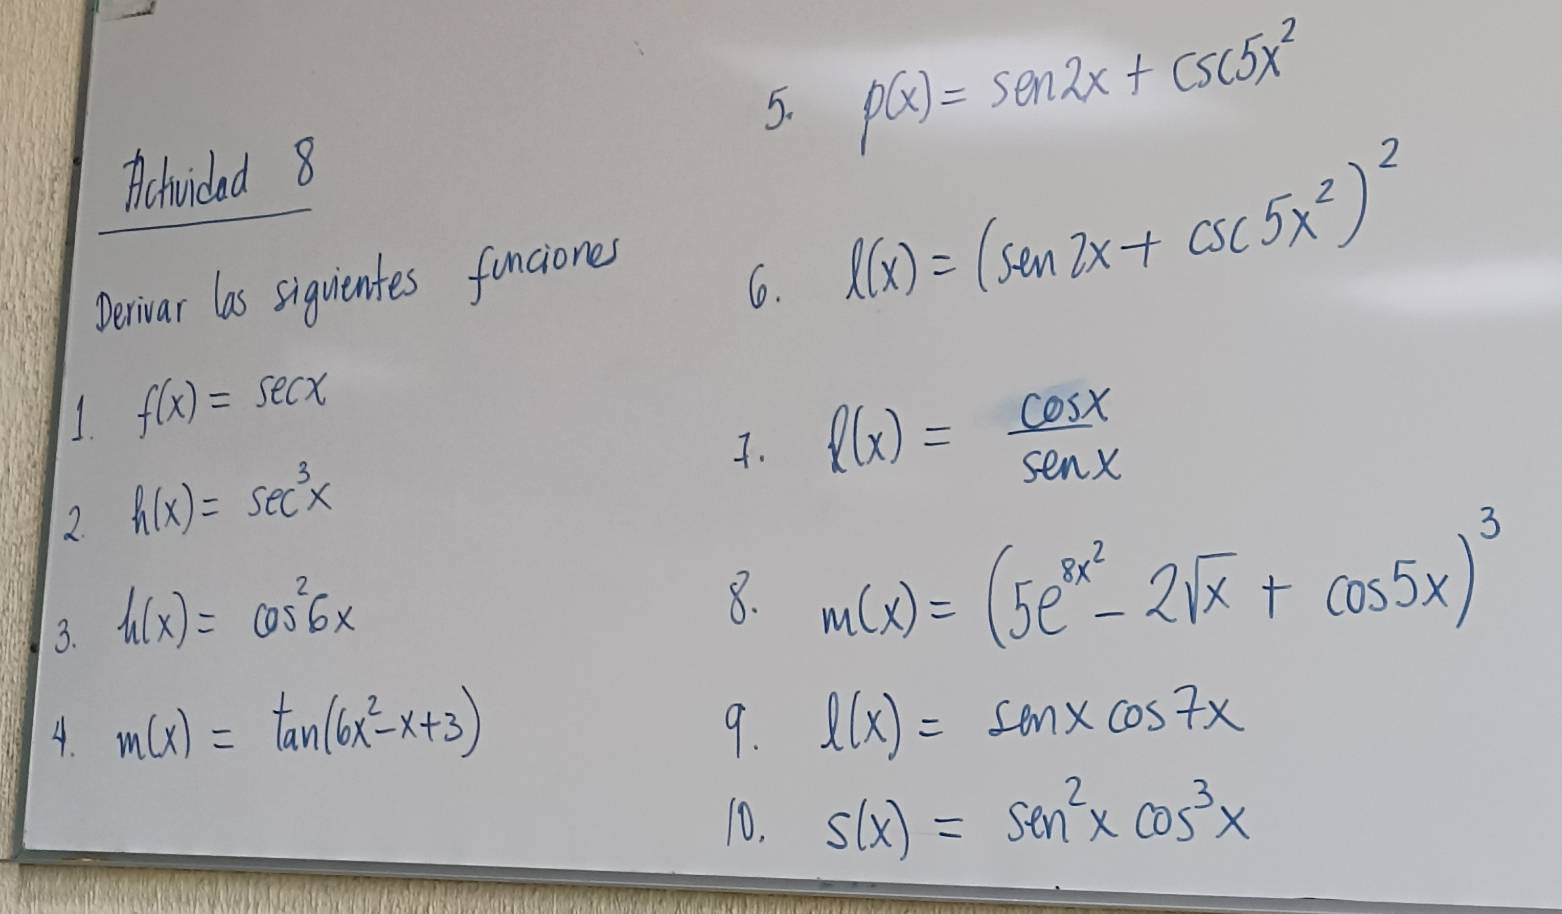 Actividad 8
Derivar las siguientes funciones
1. f(x) = secx
2. h(x) = sec³x
3. h(x) = cos²6x
4. m(x) = tan(6x²-x+3)
5. p(x) = sen2x + csc5x²
6. l(x) = (sen 2x + csc 5x²)²
7. l(x) = cosx / senx
8. m(x) = (5e^{8x²} - 2√x + cos5x)³
9. l(x) = senx cos7x
10. s(x) = sen²x cos³x